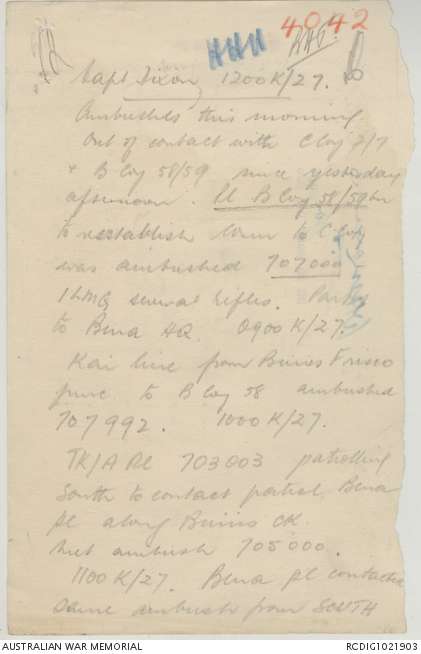 4042
HHH
Capt Dixon 1200K/27.
Ambushes this morning
Out of contact with C Coy 2/7
& B Coy 58/59 since yesterday
afternoon. Pl B Coy 58/59 bn
to reestablish comn to C Coy
was ambushed 707000
1 LMG several rifles.
to Bena HQ. 0900K/27.
Kai line from Frisco
junc to B Coy 58 ambushed
707992. 1000K/27.
Pl 703003 patrolling
South to contact patrol Bena
pl along CK.
met ambush 705000.
1100K/27. Bena pl contacted
same ambush from SOUTH
AUSTRALIAN WAR MEMORIAL
RCDIG1021903